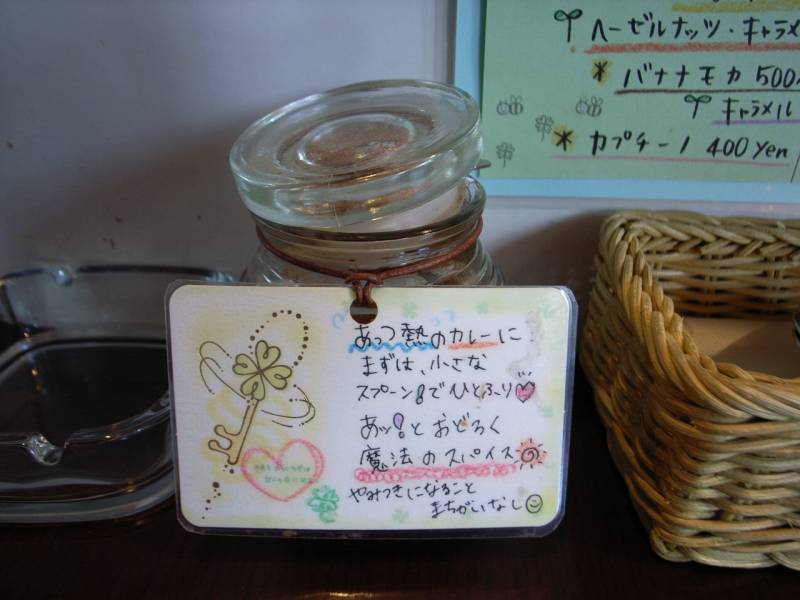 ヘーゼルナッツ・キャラメ
バナナモカ 500
キャラメル
カプチーノ 400 yen
あっつ熱のカレーに
まずは、小さな
スプーンでひとふり
あッ!とおどろく
魔法のスパイス
やみつきになること
まちがいなし